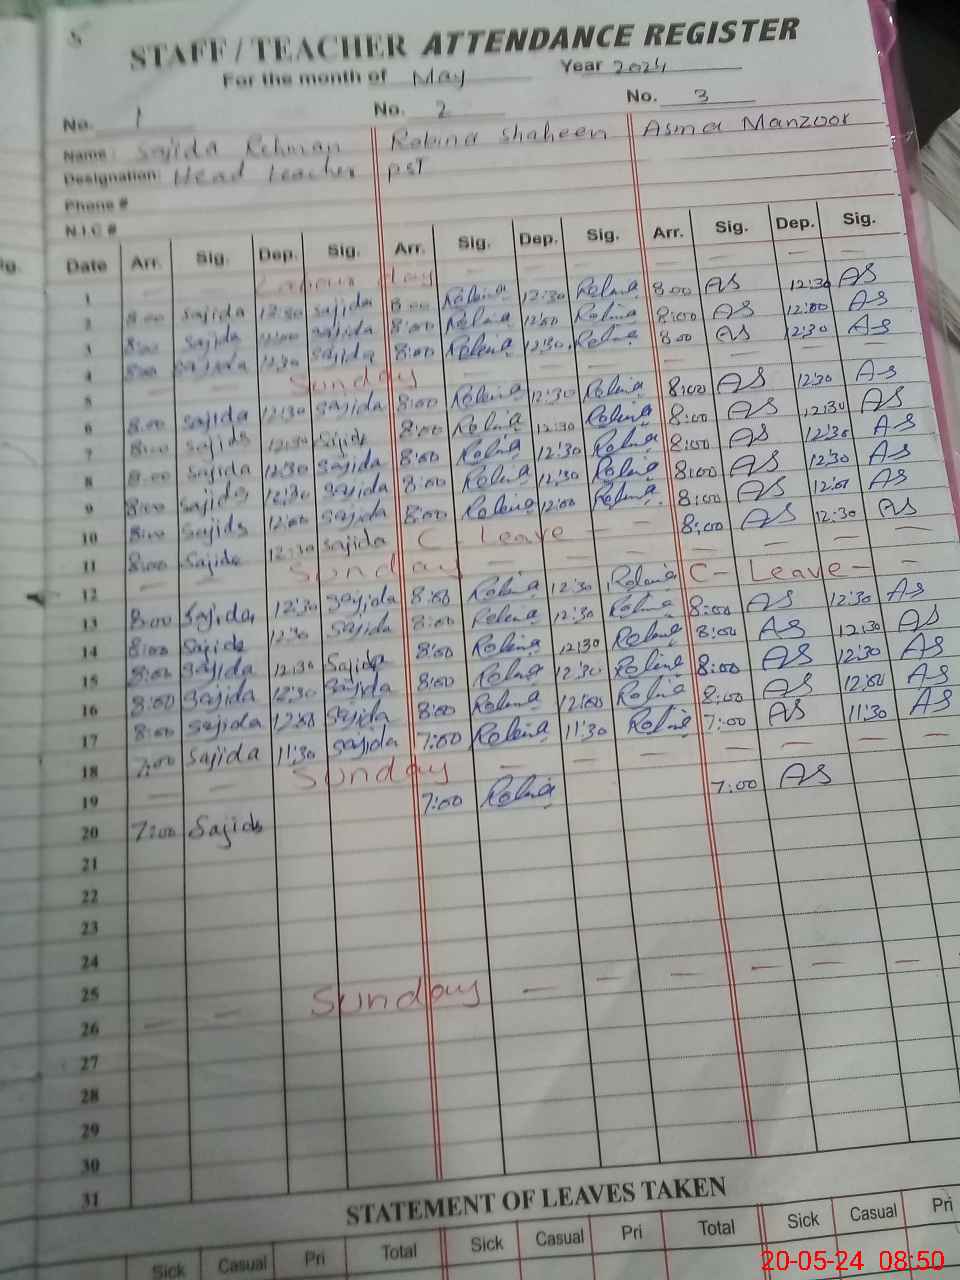 5
STAFF / TEACHER ATTENDANCE REGISTER
For the month of May Year 2024
No. 1 No. 2 No. 3
Name: Sajida Rehman Robina Shaheen Asma Manzoor
Designation: Head teacher PST
Phone #
N.I.C #
Date Arr. Sig. Dep. Sig. Arr. Sig. Dep. Sig. Arr. Sig. Dep. Sig.
1 — Labour day — — — — — —
2 8:00 Sajida 12:30 Sajida 8:00 Robina 12:30 Robina 8:00 AS 12:30 AS
3 8:00 Sajida 12:00 Sajida 8:00 Robina 12:00 Robina 8:00 AS 12:00 AS
4 8:00 Sajida 12:30 Sajida 8:00 Robina 12:30 Robina 8:00 AS 12:30 AS
5 — — Sunday — — — — — —
6 8:00 Sajida 12:30 Sajida 8:00 Robina 12:30 Robina 8:00 AS 12:30 AS
7 8:00 Sajida 12:30 Sajida 8:00 Robina 12:30 Robina 8:00 AS 12:30 AS
8 8:00 Sajida 12:30 Sajida 8:00 Robina 12:30 Robina 8:00 AS 12:30 AS
9 8:00 Sajida 12:30 Sajida 8:00 Robina 12:30 Robina 8:00 AS 12:30 AS
10 8:00 Sajida 12:00 Sajida 8:00 Robina 12:00 Robina 8:00 AS 12:00 AS
11 8:00 Sajida 12:30 Sajida C - Leave — — 8:00 AS 12:30 AS
12 — — Sunday — — — — — — —
13 8:00 Sajida 12:30 Sajida 8:00 Robina 12:30 Robina C - Leave - —
14 8:00 Sajida 12:30 Sajida 8:00 Robina 12:30 Robina 8:00 AS 12:30 AS
15 8:00 Sajida 12:30 Sajida 8:00 Robina 12:30 Robina 8:00 AS 12:30 AS
16 8:00 Sajida 12:30 Sajida 8:00 Robina 12:30 Robina 8:00 AS 12:30 AS
17 8:00 Sajida 12:00 Sajida 8:00 Robina 12:00 Robina 8:00 AS 12:00 AS
18 7:00 Sajida 11:30 Sajida 7:00 Robina 11:30 Robina 7:00 AS 11:30 AS
19 — — Sunday — — — — — — —
20 7:00 Sajida 7:00 Robina 7:00 AS
21
22
23
24
25
26 — — Sunday — — — — — —
27
28
29
30
31
STATEMENT OF LEAVES TAKEN
Sick Casual Pri Total Sick Casual Pri Total Sick Casual Pri
20-05-24 08:50